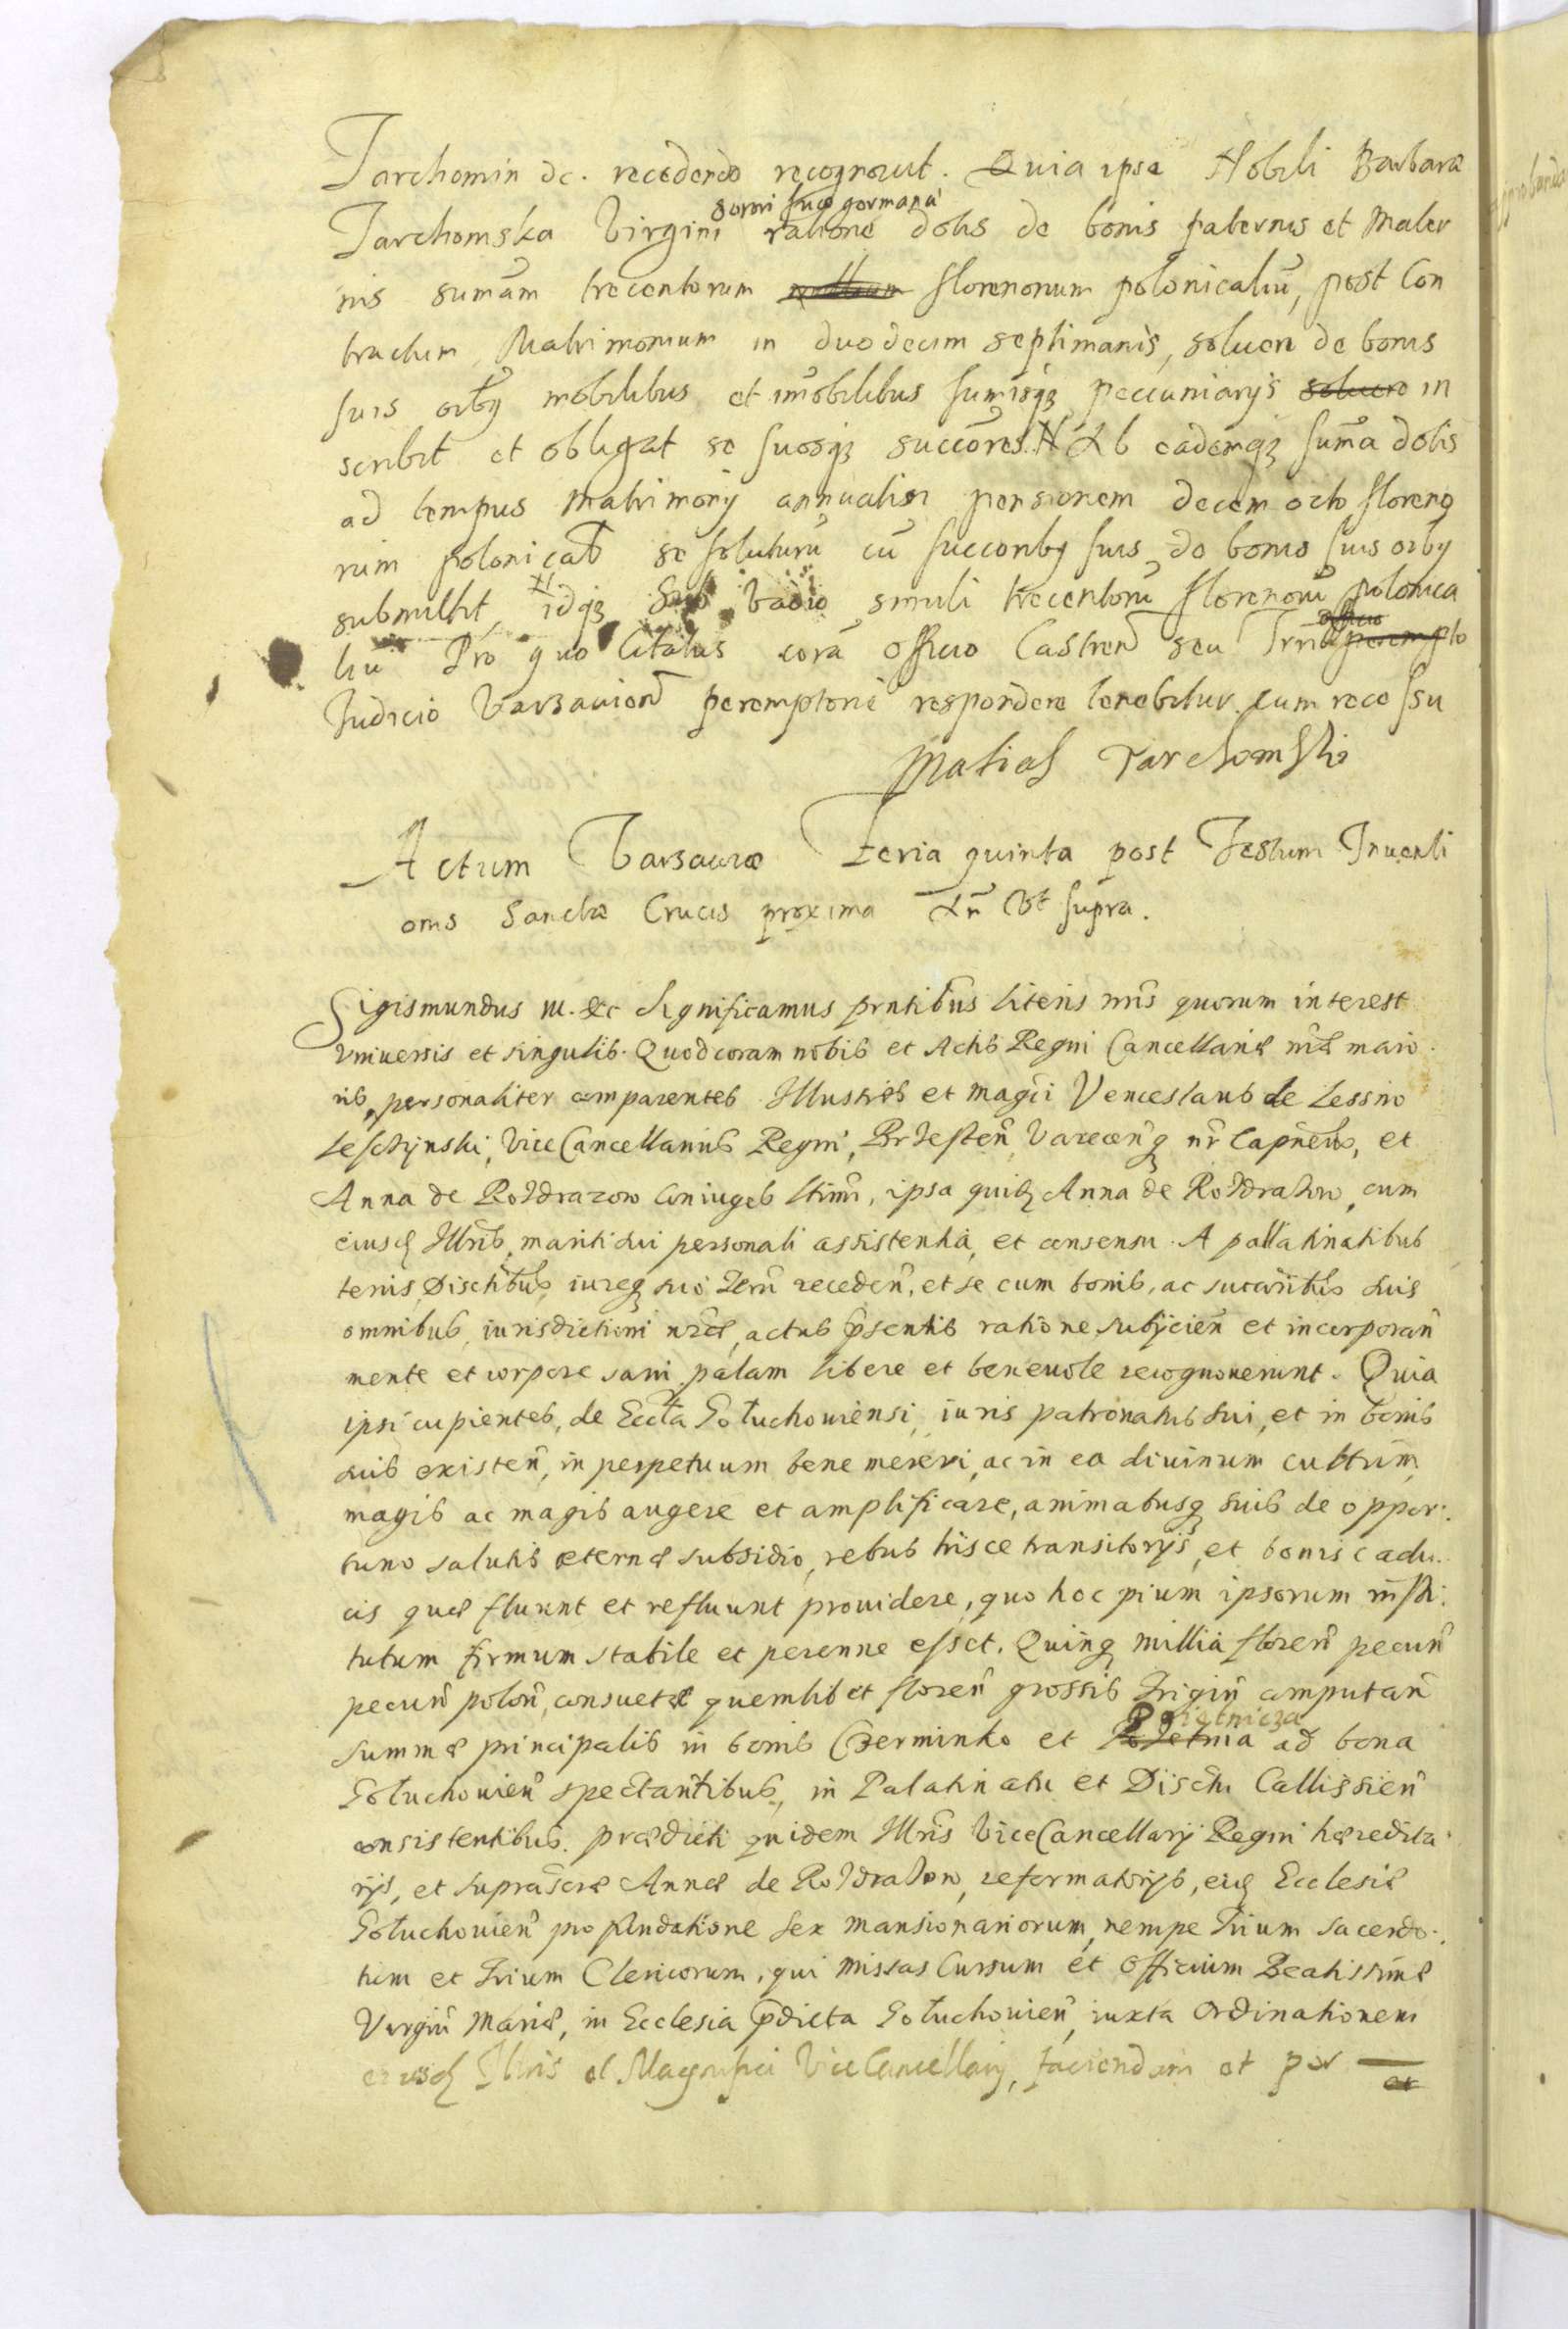 Tarchomin dc. recedendo recognouit. Quia ipse Nobili Barbaræ
sorori suæ germanæ
Tarchomska Virgini ratione dotis de bonis paternis et Mater
nis sumam trecentorum florenorum polonicaliũ, post Con
tractum Matrimonium in duodecim septimanis, soluere de bonis
suis oibꝫ mobilibus et imobilibus sumisqꝫ peccuniarijs soluere in
scribit et obligat se suosqꝫ succores. Ab eademqꝫ suma dotis
ad tempus matrimonij annualem pensionem decem octo floreno
rum polonical se soluturũ cũ succoribꝫ suis de bonis suis oibꝫ
submittit, idqꝫ Sub vadio simili trecentorũ florenorũ polonica
liũ Pro quo Citatus corã officio Castren seu Trri
officio perempto
Judicio Varsauien peremptorie respondere tenebitur. cum recessu
Matias Tarchomski
Actum Varsauiæ Feria quinta post Festum Inuenti
onis Sanctæ Crucis proxima An Vt supra.
Sigismundus III. &c Significamus pntibus literis nris quorum interest
vniuersis et singulis. Quod coram nobis et Actis Regni Cancellariæ nræ maio
ris, personaliter comparentes Illustres et magci Venceslaus de Lessno
Leschynski, ViceCancellarius Regni, Brzesten, Varecenqꝫ nr Capneus, et
Anna de Rozdrazow Coniuges ltimi, ipsa quidem Anna de Rozdrazow, cum
eiusd Illris, mariti sui personali assistentia, et consensu. A pallatinatibus
terris, Districtibus, iureqꝫ suo Terr receden, et se cum bonis, ac succoribus suis
omnibus, iurisdictioni nræ, actus psentis ratione subijcien et incorporan
mente et corpore sani palam libere et beneuole recognouerunt. Quia
ipsi cupientes, de Eccla Gołuchouiensi, iuris patronatus sui, et in bonis
suis existen, in perpetuum bene mereri, ac in ea diuinum cultum,
magis ac magis augere et amplificare, animabusqꝫ suis de oppor:
tuno salutis æternæ subsidio, rebus hisce transitorijs, et bonis cadu.
cis quæ fluunt et refluunt prouidere, quo hoc pium ipsorum insti:
tutum firmum stabile et perenne esset. Quinqꝫ millia floren pecun
pecun polon, consuetæ quemlibet floren grossis Trigin computan
Poietnicza
summæ principalis in bonis Czerminko et ad bona
Gołuchouien spectantibus, in Palatinatu et Districtu Callissien
consistentibus. prædicti quidem Illris ViceCancellarij Regni hæredita
rijs, et suprascræ Annæ de Rozdrazow, reformatorijs, eid Ecclesiæ
Gołuchouien pro fundatione sex mansionariorum, nempe Trium sacerdo.
tum et Trium Clericorum, qui missas Cursum et Officium Beatissimæ
Virgin Mariæ, in Ecclesia pdicta Gołuchouien, iuxta Ordinationem
eiusd Illris et Magnifici ViceCancellarij, faciendam et per